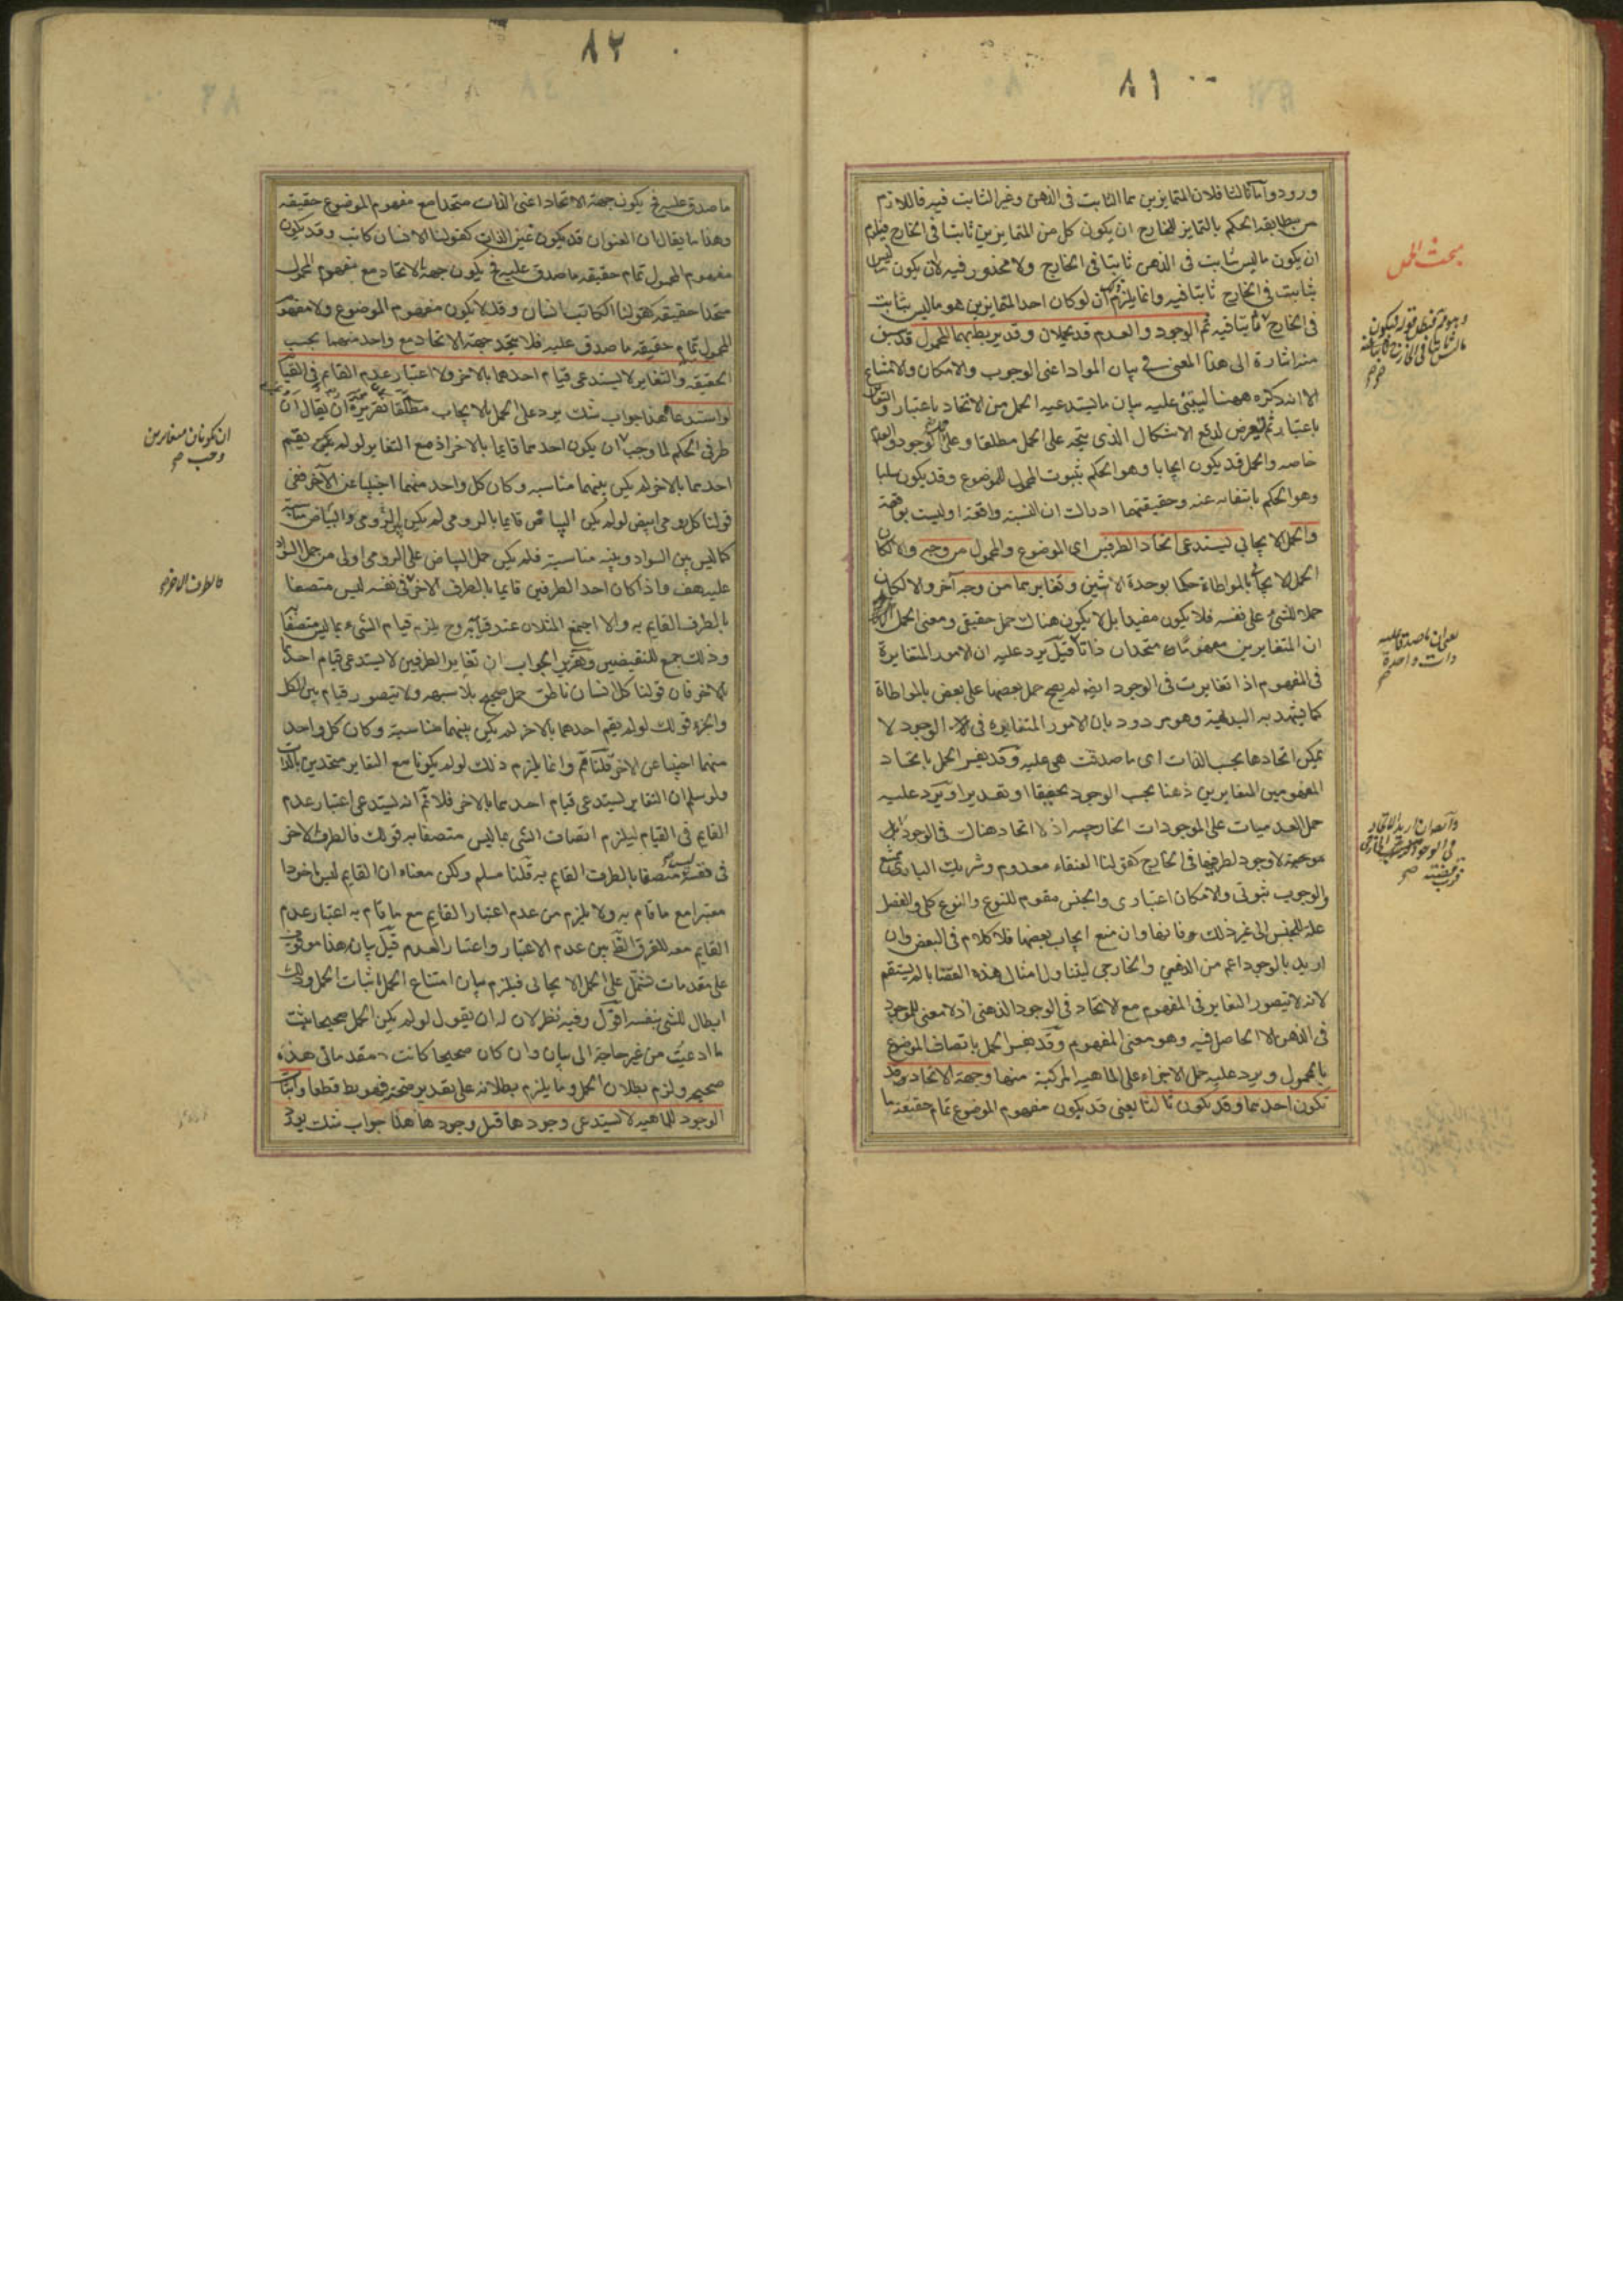 ٨١
ورود واما ثالثا فلان المتمايزين هما الثابت فى الذهن وغير الثابت فيه فاللازم
من مطابقة الحكم بالتمايز للخارج ان يكون كل من المتمايزين ثابتا فى الخارج فيلزم
ان يكون ماليس ثابت فى الذهن ثابتا فى الخارج ولا محذور فيه لان يكون ماليس
بثابت فى الخارج ثابتا فيه وانما يلزم ان لو كان احد المتمايزين هو ماليس بثابت
فى الخارج ثابتا فيه ثم الوجود والعدم قد يحملان وقد يربط بهما المحمول قد سبق
منه اشارة الى هذا المعنى فى بيان المواد اعنى الوجوب والامكان والامتناع
الا انه ذكره ههنا ليبتنى عليه بيان ما يستدعيه الحمل من الاتحاد باعتبار والتغاير
باعتبار ثم تعرض لدفع الاشكال الذى يتجه على الحمل مطلقا وعلى الوجود والعدم
خاصه والحمل قد يكون ايجابا وهو الحكم بثبوت المحمول للموضوع وقد يكون سلبا
وهو الحكم بانتفائه عنه وحقيقتهما ادراك ان النسبة واقعة او ليست بواقعة
والحمل الايجابى يستدعى اتحاد الطرفين اى الموضوع والمحمول من وجه والا لكان
الحمل الايجابى بالمواطاة حكما بوحدة الاثنين وتغايرهما من وجه آخر والا لكان
حملا للشئ على نفسه فلا يكون مفيدا بل لا يكون هناك حمل حقيقى ومعنى الحمل
ان المتغايرين مفهوما متحدان ذاتا قيل يرد عليه ان الامور المتغايرة
فى المفهوم اذا تغايرت فى الوجود ايضا لم يصح حمل بعضها على بعض بالمواطاة
كما يشهد به البديهة وهو مردود بان الامور المتغايرة فى الوجود لا
يمكن اتحادها بحسب الذات اى ما صدقت هى عليه وقد يفسر الحمل باتحاد
المفهومين المتغايرين ذهنا بحسب الوجود تحقيقا او تقديرا ويرد عليه
حمل العدميات على الموجودات الخارجيه اذ لا اتحاد هناك فى الوجود
موجبة لا وجود لطرفيها فى الخارج كقولنا العنقاء معدوم وشريك البارى ممتنع
والوجوب ثبوتى والامكان اعتبارى والجنس مقوم للنوع والنوع كلى والفصل
علة للجنس الى غير ذلك وان منع ايجاب بعضها فلا كلام فى البعض وان
اريد بالوجود اعم من الذهنى والخارجى ليتناول امثال هذه القضايا لم يستقم
لانه لا يتصور التغاير فى المفهوم مع الاتحاد فى الوجود الذهنى اذ لا معنى للوجود
فى الذهن الا الحاصل فيه وهو معنى المفهوم وقد يفسر الحمل باتصاف الموضوع
بالمحمول ويرد عليه حمل الاجزاء على الماهية المركبة منها وجهة الاتحاد قد
تكون احدهما وقد تكون ثالثا يعنى قد يكون مفهوم الموضوع تمام حقيقة ما
مبحث الحمل
يعنى ان ما صدقا عليه
ذات واحدة
٨٢
ما صدق عليه فح يكون جهة الاتحاد اعنى الذات متحدا مع مفهوم الموضوع حقيقه
وهذا ما يقال ان العنوان قد يكون عين الذات كقولنا الانسان كاتب وقد يكون
مفهوم المحمول تمام حقيقه ما صدق عليه فح يكون جهة الاتحاد مع مفهوم المحمول
متحدا حقيقه كقولنا الكاتب انسان وقد لا يكون مفهوم الموضوع ولا مفهوم
المحمول تمام حقيقه ما صدق عليه فلا يتحد جهة الاتحاد مع واحد منهما بحسب
الحقيقه والتغاير لا يستدعى قيام احدهما بالآخر ولا اعتبار عدم القائم فى القيام
لو استدعاه هذا جواب شك يرد على الحمل بالايجاب مطلقا تقريره ان يقال ان
طرفى الحكم لما وجب ان يكون احدهما قايما بالاخر اذ مع التغاير لو لم يكن يقيم
احدهما بالاخر لم يكن بينهما مناسبه وكان كل واحد منهما اجنبيا عن الآخر ففى
قولنا كل رومى ابيض لو لم يكن البياض قايما بالرومى لم يكن بين الرومى والبياض مناسبة
كما ليس بين السواد وبينه مناسبة فلم يكن حمل البياض على الرومى اولى من حمل السواد
عليه هف واذا كان احد الطرفين قايما بالطرف الاخر فى نفسه ليس متصفا
بالطرف القايم به والا اجتمع المثلان عند قيامه به وح يلزم قيام الشىء بما ليس متصفا
وذلك جمع للنقيضين وتقرير الجواب ان تغاير الطرفين لا يستدعى قيام احدهما
بالاخر فان قولنا كل انسان ناطق حمل صحيح بلا شبهه ولا يتصور قيام بين الكل
والجزء قولك لو لم يقم احدهما بالاخر لم يكن بينهما مناسبة وكان كل واحد
منهما اجنبيا عن الاخر قلنا مم وانما يلزم ذلك لو لم يكونا مع التغاير متحدين بالذات
ولو سلم ان التغاير يستدعى قيام احدهما بالاخر فلا نم انه يستدعى اعتبار عدم
القايم فى القيام ليلزم اتصاف الشى بما ليس متصفا به قولك فالطرف الاخر
فى نفسه ليس متصفا بالطرف القايم به قلنا مسلم ولكن معناه ان القايم ليس ماخوذا
معتبرا مع ما قام به ولا يلزم من عدم اعتبار القايم مع ما قام به اعتبار عدم
القايم معه للفرق الظ بين عدم الاعتبار واعتبار العدم قيل بيان هذا موقوف
على مقدمات تشتمل على الحمل الايجابى فيلزم بيان امتناع الحمل اثبات الحمل وذلك
ابطال للشى بنفسه اقول وفيه نظر لان له ان يقول لو لم يكن الحمل صحيحا يثبت
ما ادعيت من غير حاجة الى بيان وان كان صحيحا كانت مقدماتى هذه
صحيحه ولزم بطلان الحمل وما يلزم بطلانه على تقدير صحته فهو بط قطعا واثبات
الوجود للماهية لا يستدعى وجودها قبل وجودها هذا جواب شك يورد
ان يكونان متغايرين
وجب صح
فالطرف الاخر